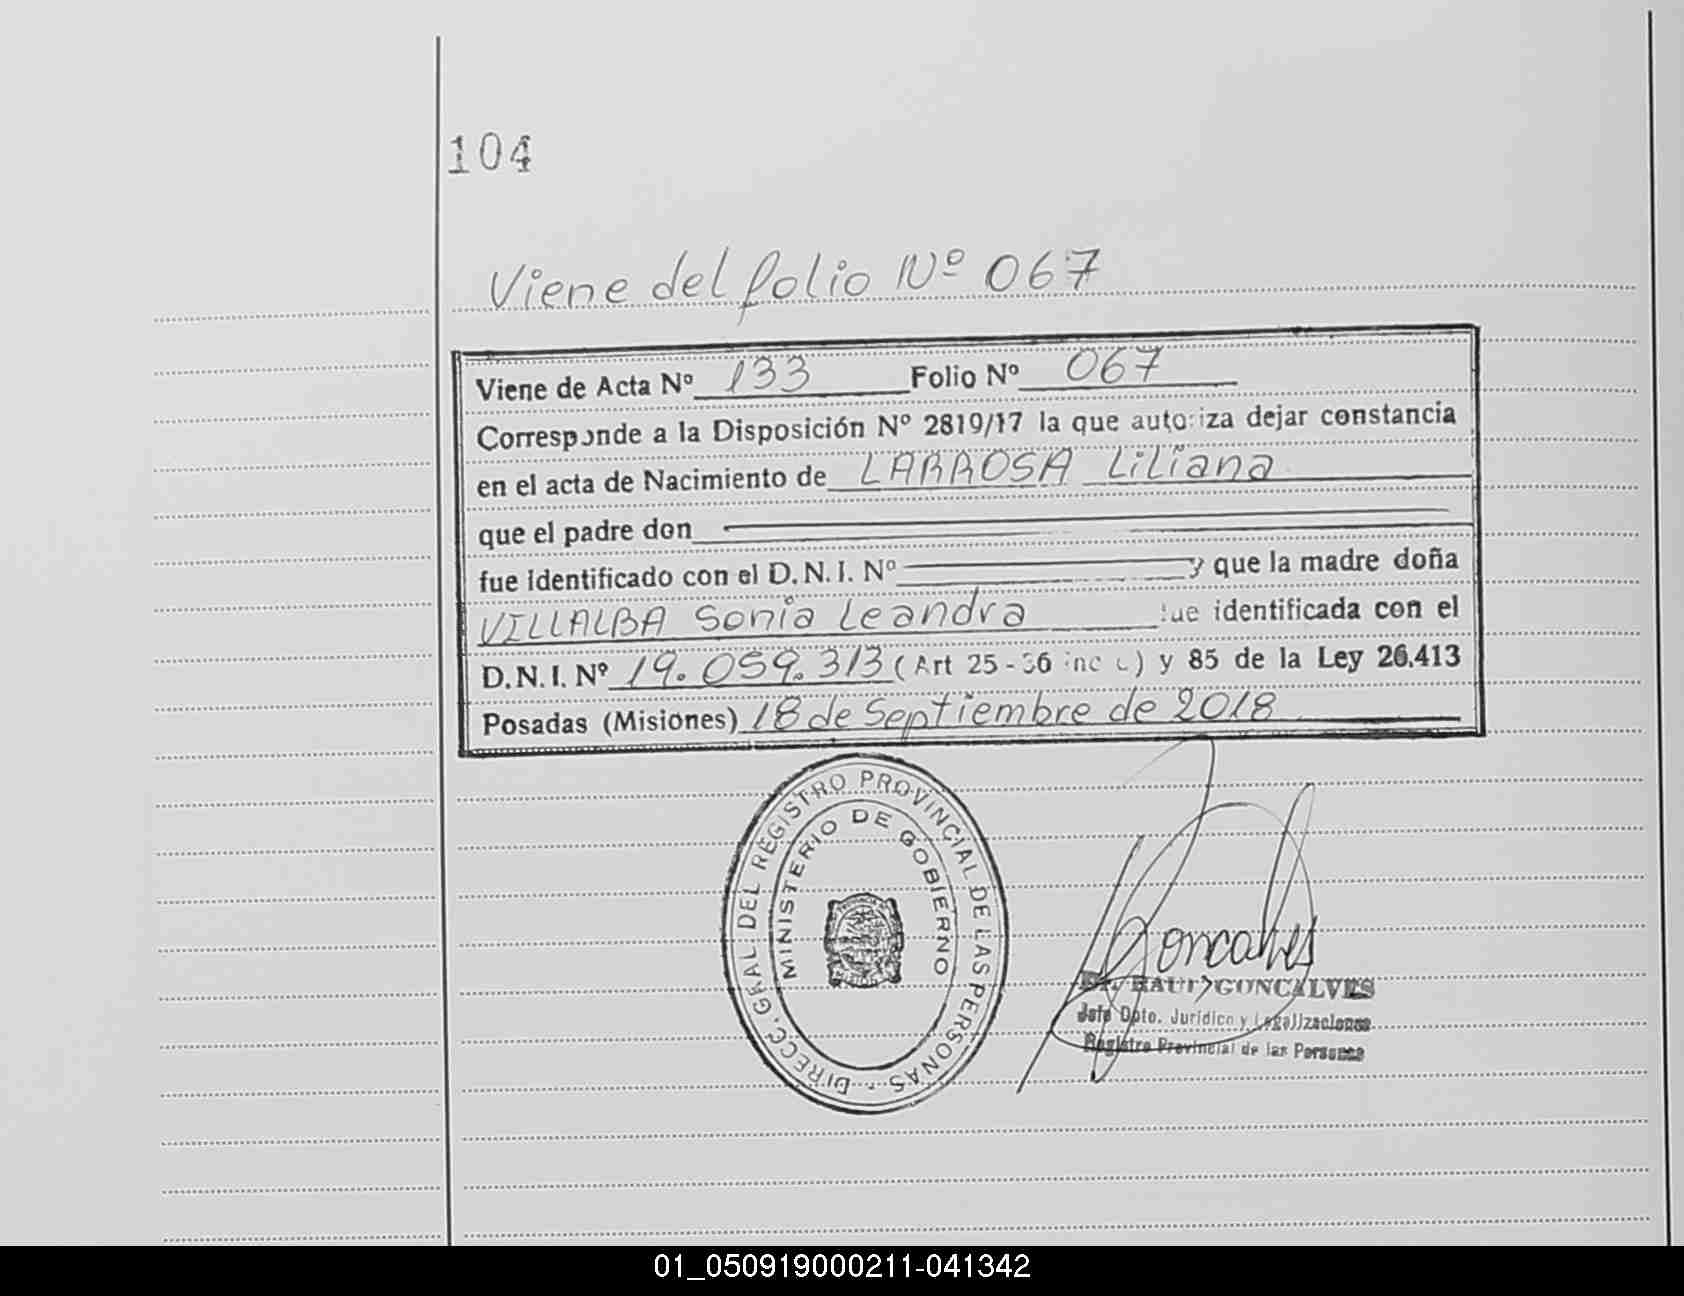 104
Viene del folio Nº 067
Viene de Acta Nº 133 Folio Nº 067
Corresponde a la Disposición Nº 2819/17 la que autoriza dejar constancia
en el acta de Nacimiento de LARROSA Liliana
que el padre don
fue identificado con el D.N.I. Nº y que la madre doña
VILLALBA Sonia Leandra fue identificada con el
D.N.I. Nº 19.059.313 (Art 25-36 inc c) y 85 de la Ley 26.413
Posadas (Misiones) 18 de Septiembre de 2018
DIRECC. GRAL. DEL REGISTRO PROVINCIAL DE LAS PERSONAS
MINISTERIO DE GOBIERNO
Goncalves
Dr. RAUL GONCALVES
Jefe Dpto. Jurídico y Legalizaciones
Registro Provincial de las Personas
01_050919000211-041342